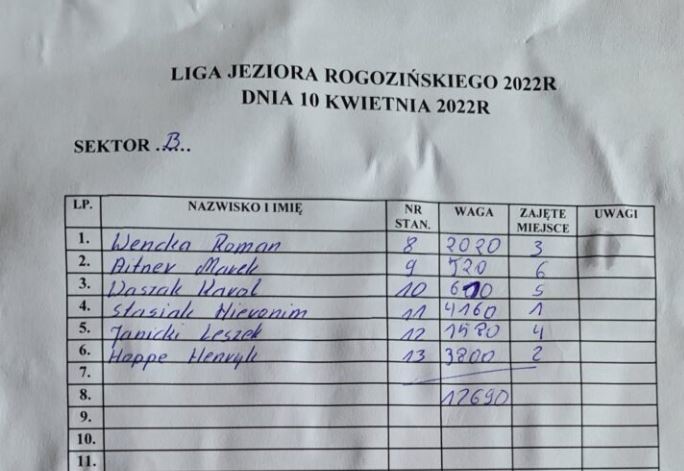 LIGA JEZIORA ROGOZIŃSKIEGO 2022R
DNIA 10 KWIETNIA 2022R
SEKTOR .B..
LP. NAZWISKO I IMIĘ NR STAN. WAGA ZAJĘTE MIEJSCE UWAGI
1. Wencka Roman 8 2020 3
2. Marek 9 520 6
3. Waszak Karol 10 610 5
4. Stasiak Hieronim 11 4160 1
5. Janicki Leszek 12 1580 4
6. Hoppe Henryk 13 3800 2
7.
8. 12690
9.
10.
11.